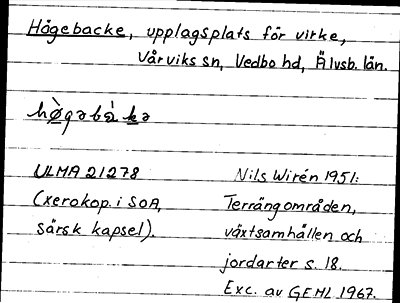 Högebacke, upplagsplats för virke,
Vårviks sn, Vedbo hd, Älvsb. län.
ULMA 21278
(xerokop. i SOA,
särsk kapsel).
Nils Wirén 1951:
Terrängområden,
växtsamhällen och
jordarter s. 18.
Exc. av GEHL 1967.